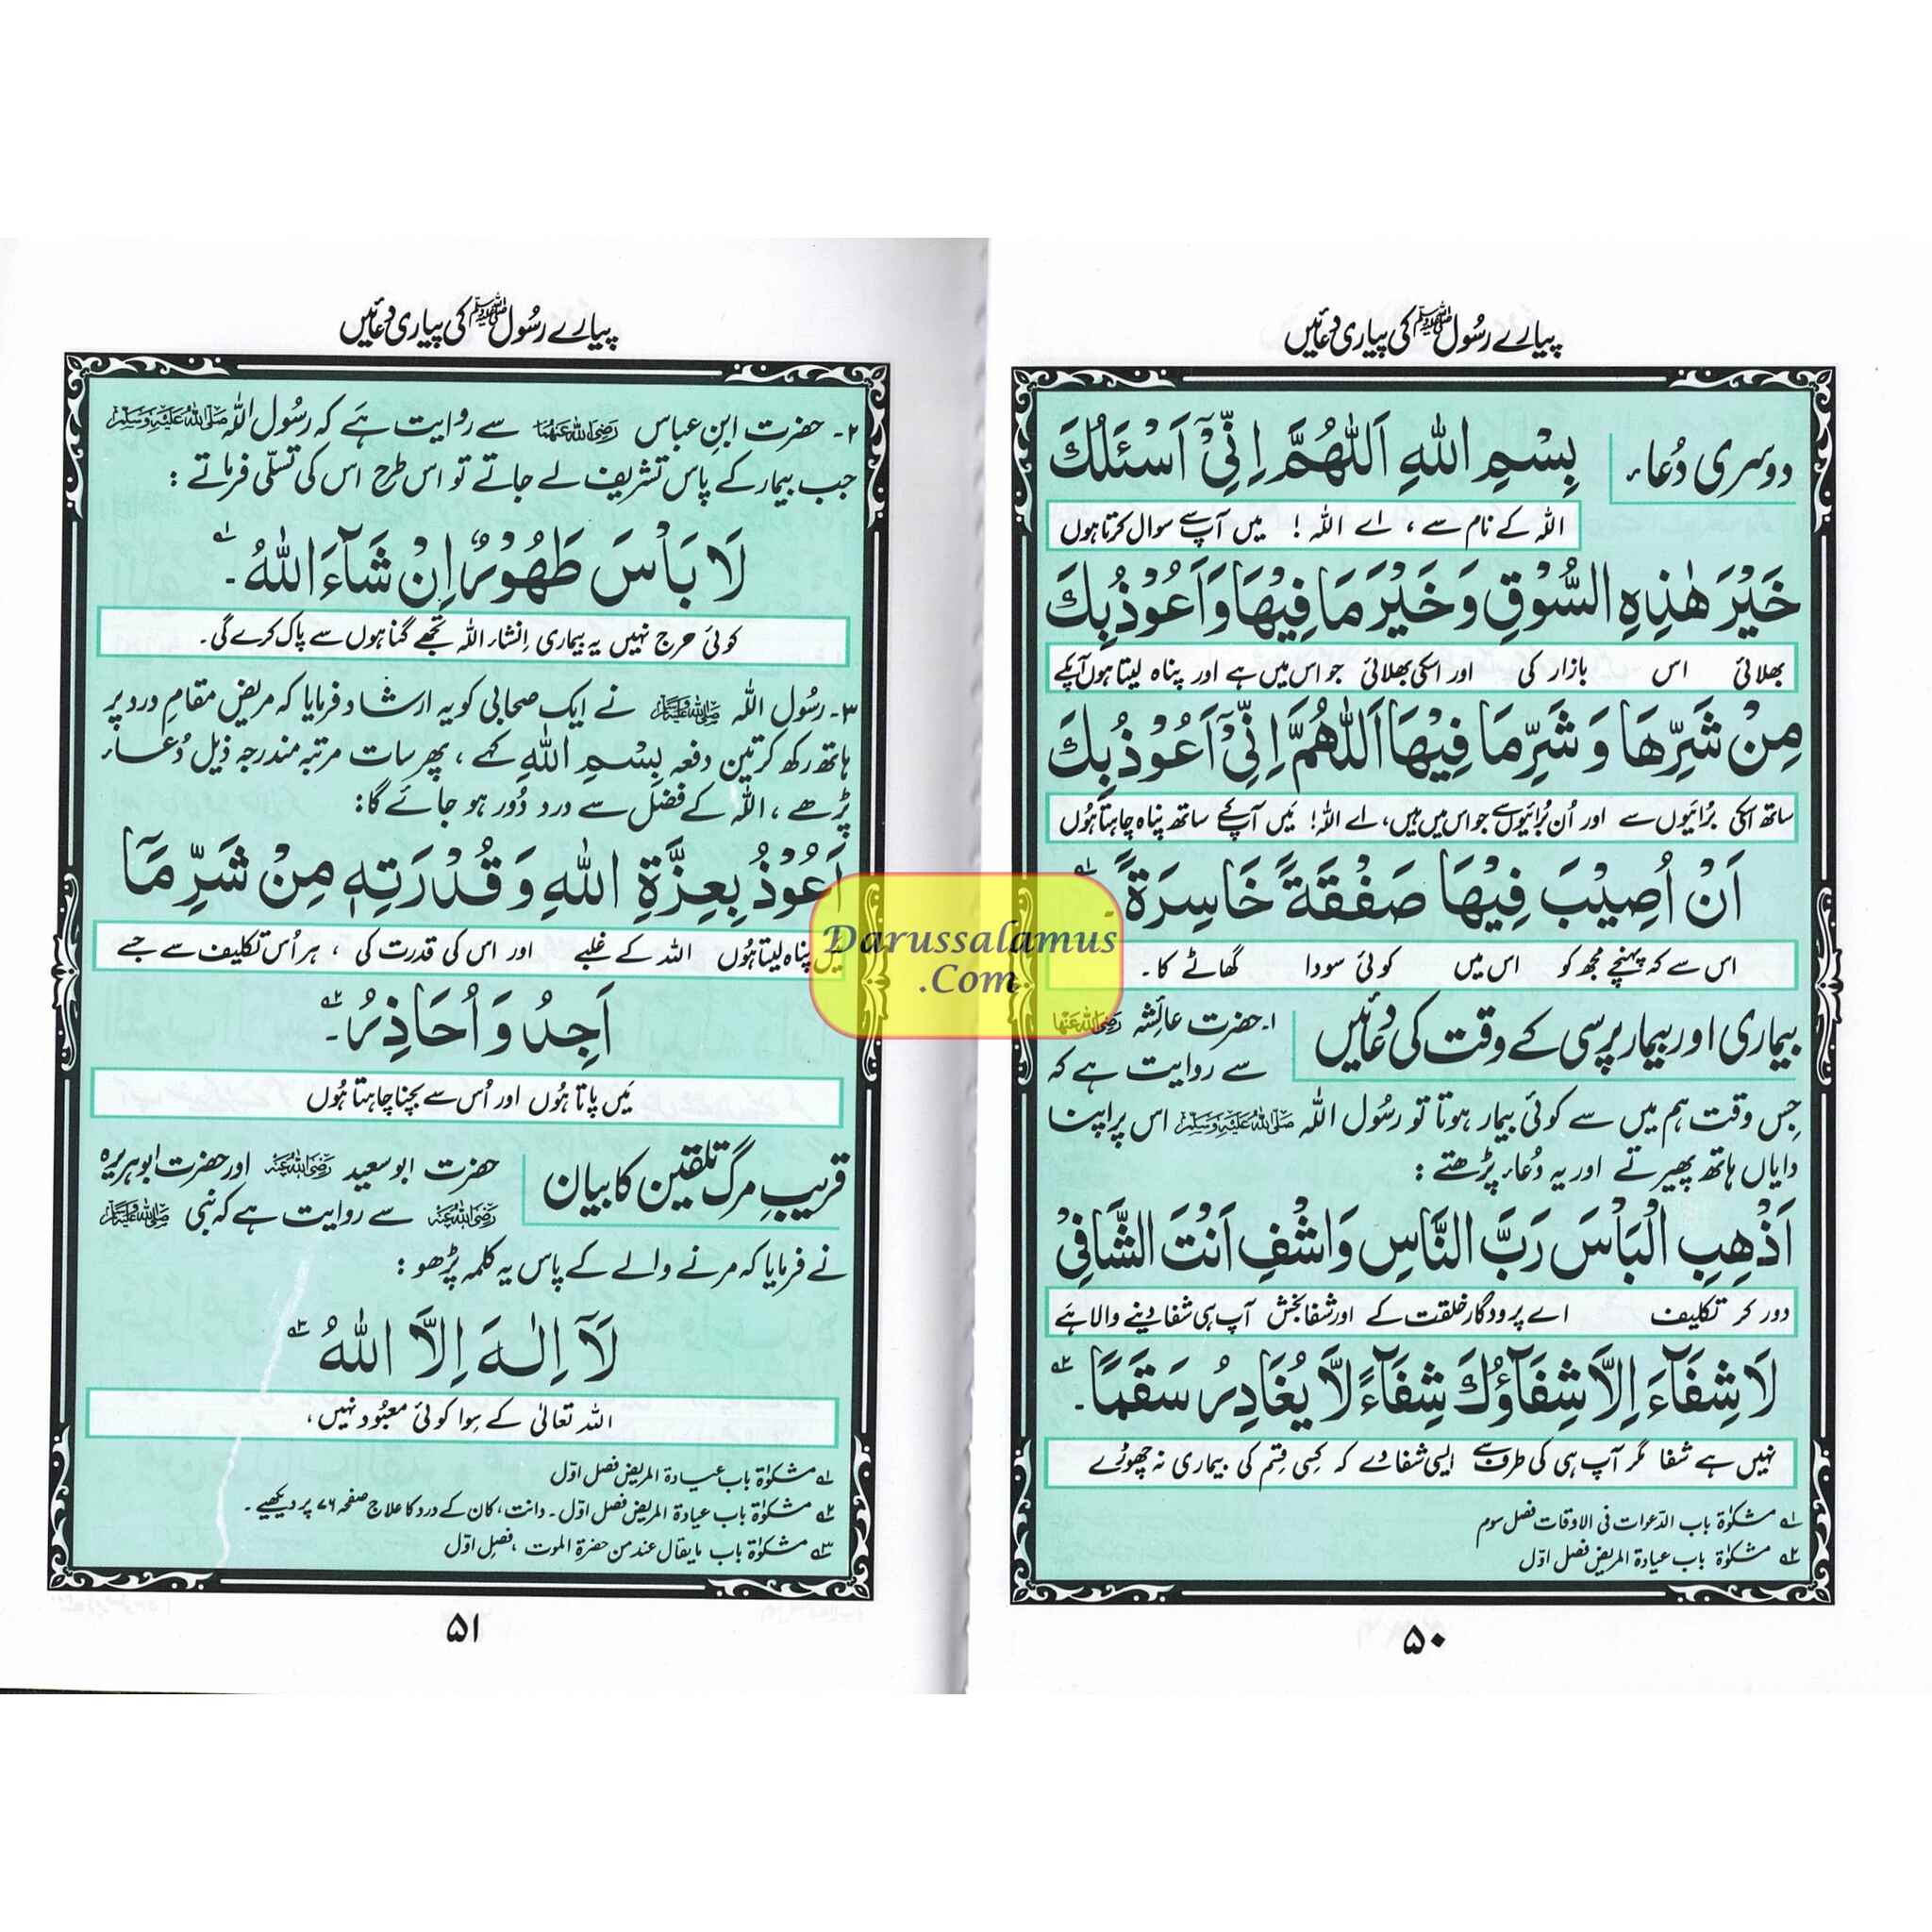 پیارے رسُول ﷺ کی پیاری دُعائیں
دوسری دُعاء
بِسْمِ اللّٰهِ اَللّٰهُمَّ اِنِّیْۤ اَسْئَلُكَ
اللہ کے نام سے ، اے اللہ ! میں آپ سے سوال کرتا ہوں
خَیْرَ هٰذِهِ السُّوْقِ وَخَیْرَ مَا فِیْهَا وَاَعُوْذُ بِكَ
بھلائی اس بازار کی اور اسکی بھلائی جو اس میں ہے اور پناہ لیتا ہوں آپکے
مِنْ شَرِّهَا وَ شَرِّ مَا فِیْهَا اَللّٰهُمَّ اِنِّیْۤ اَعُوْذُ بِكَ
ساتھ اسکی بُرائیوں سے اور اُن بُرائیوں سے جو اس میں ہیں، اے اللہ! میَں آپ کے ساتھ پناہ چاہتا ہُوں
اَنْ اُصِیْبَ فِیْهَا صَفْقَةً خَاسِرَةً۔ ؎۱
اس سے کہ پہنچے مجھ کو اس میں کوئی سودا گھاٹے کا۔
بیماری اور بیمار پرسی کے وقت کی دُعائیں
۱۔ حضرت عائشہ رَضِیَ اللہُ عَنْہَا
سے روایت ہے کہ
جِس وقت ہم میں سے کوئی بیمار ہوتا تو رسُول اللہ صَلَّی اللہُ عَلَیْہِ وَسَلَّم اس پر اپنا
دایاں ہاتھ پھیرتے اور یہ دُعاء پڑھتے :
اَذْهِبِ الْبَاْسَ رَبَّ النَّاسِ وَاشْفِ اَنْتَ الشَّافِیْ
دور کر تکلیف اے پرودگار خلقت کے اور شفا بخش آپ ہی شفا دینے والا ہے
لَا شِفَآءَ اِلَّا شِفَآؤُكَ شِفَآءً لَّا یُغَادِرُ سَقَمًا۔ ؎۲
نہیں ہے شفا مگر آپ ہی کی طرف سے ایسی شفا دے کہ کِسی قِسم کی بیماری نہ چھوڑے
؎۱ مشکوٰۃ باب الدّعوات فی الاوقات فصل سوم
؎۲ مشکوٰۃ باب عیادۃ المریض فصل اوّل
۵۰
پیارے رسُول ﷺ کی پیاری دُعائیں
۲۔ حضرت ابنِ عباس رَضِیَ اللہُ عَنْہُمَا سے روایت ہے کہ رسُول اللہ صَلَّی اللہُ عَلَیْہِ وَسَلَّم
جب بیمار کے پاس تشریف لے جاتے تو اس طرح اس کی تسلّی فرماتے :
لَا بَاْسَ طَهُوْرٌ اِنْ شَآءَ اللّٰهُ۔ ؎۱
کوئی حرج نہیں یہ بیماری اِنشاء اللہ تجھے گناہوں سے پاک کرے گی۔
۳۔ رسُول اللہ ﷺ نے ایک صحابی کو یہ ارشاد فرمایا کہ مریض مقامِ درد پر
ہاتھ رکھ کر تین دفعہ بِسْمِ اللّٰهِ کہے ، پھر سات مرتبہ مندرجہ ذیل دُعاء
پڑھے ، اللہ کے فضل سے درد دُور ہو جائے گا:
اَعُوْذُ بِعِزَّةِ اللّٰهِ وَ قُدْرَتِهٖ مِنْ شَرِّ مَآ
میَں پناہ لیتا ہُوں اللہ کے غلبے اور اس کی قدرت کی ، ہر اُس تکلیف سے جسے
اَجِدُ وَ اُحَاذِرُ۔ ؎۲
میَں پاتا ہُوں اور اُس سے بچنا چاہتا ہُوں
قریبِ مرگ تلقین کا بیان
حضرت ابو سعید رَضِیَ اللہُ عَنْہُ اور حضرت ابوہریرہ
رَضِیَ اللہُ عَنْہُ سے روایت ہے کہ نبی ﷺ
نے فرمایا کہ مرنے والے کے پاس یہ کلمہ پڑھو :
لَآ اِلٰهَ اِلَّا اللّٰهُ ؎۳
اللہ تعالیٰ کے سِوا کوئی معبُود نہیں،
؎۱ مشکوٰۃ باب عیادۃ المریض فصل اوّل
؎۲ مشکوٰۃ باب عیادۃ المریض فصل اوّل۔ دانت، کان کے درد کا علاج صفحہ ۷۶ پر دیکھیے۔
؎۳ مشکوٰۃ باب مایقال عند من حضرۃ الموت ،فصل اوّل
۵۱
Darussalamus
.Com